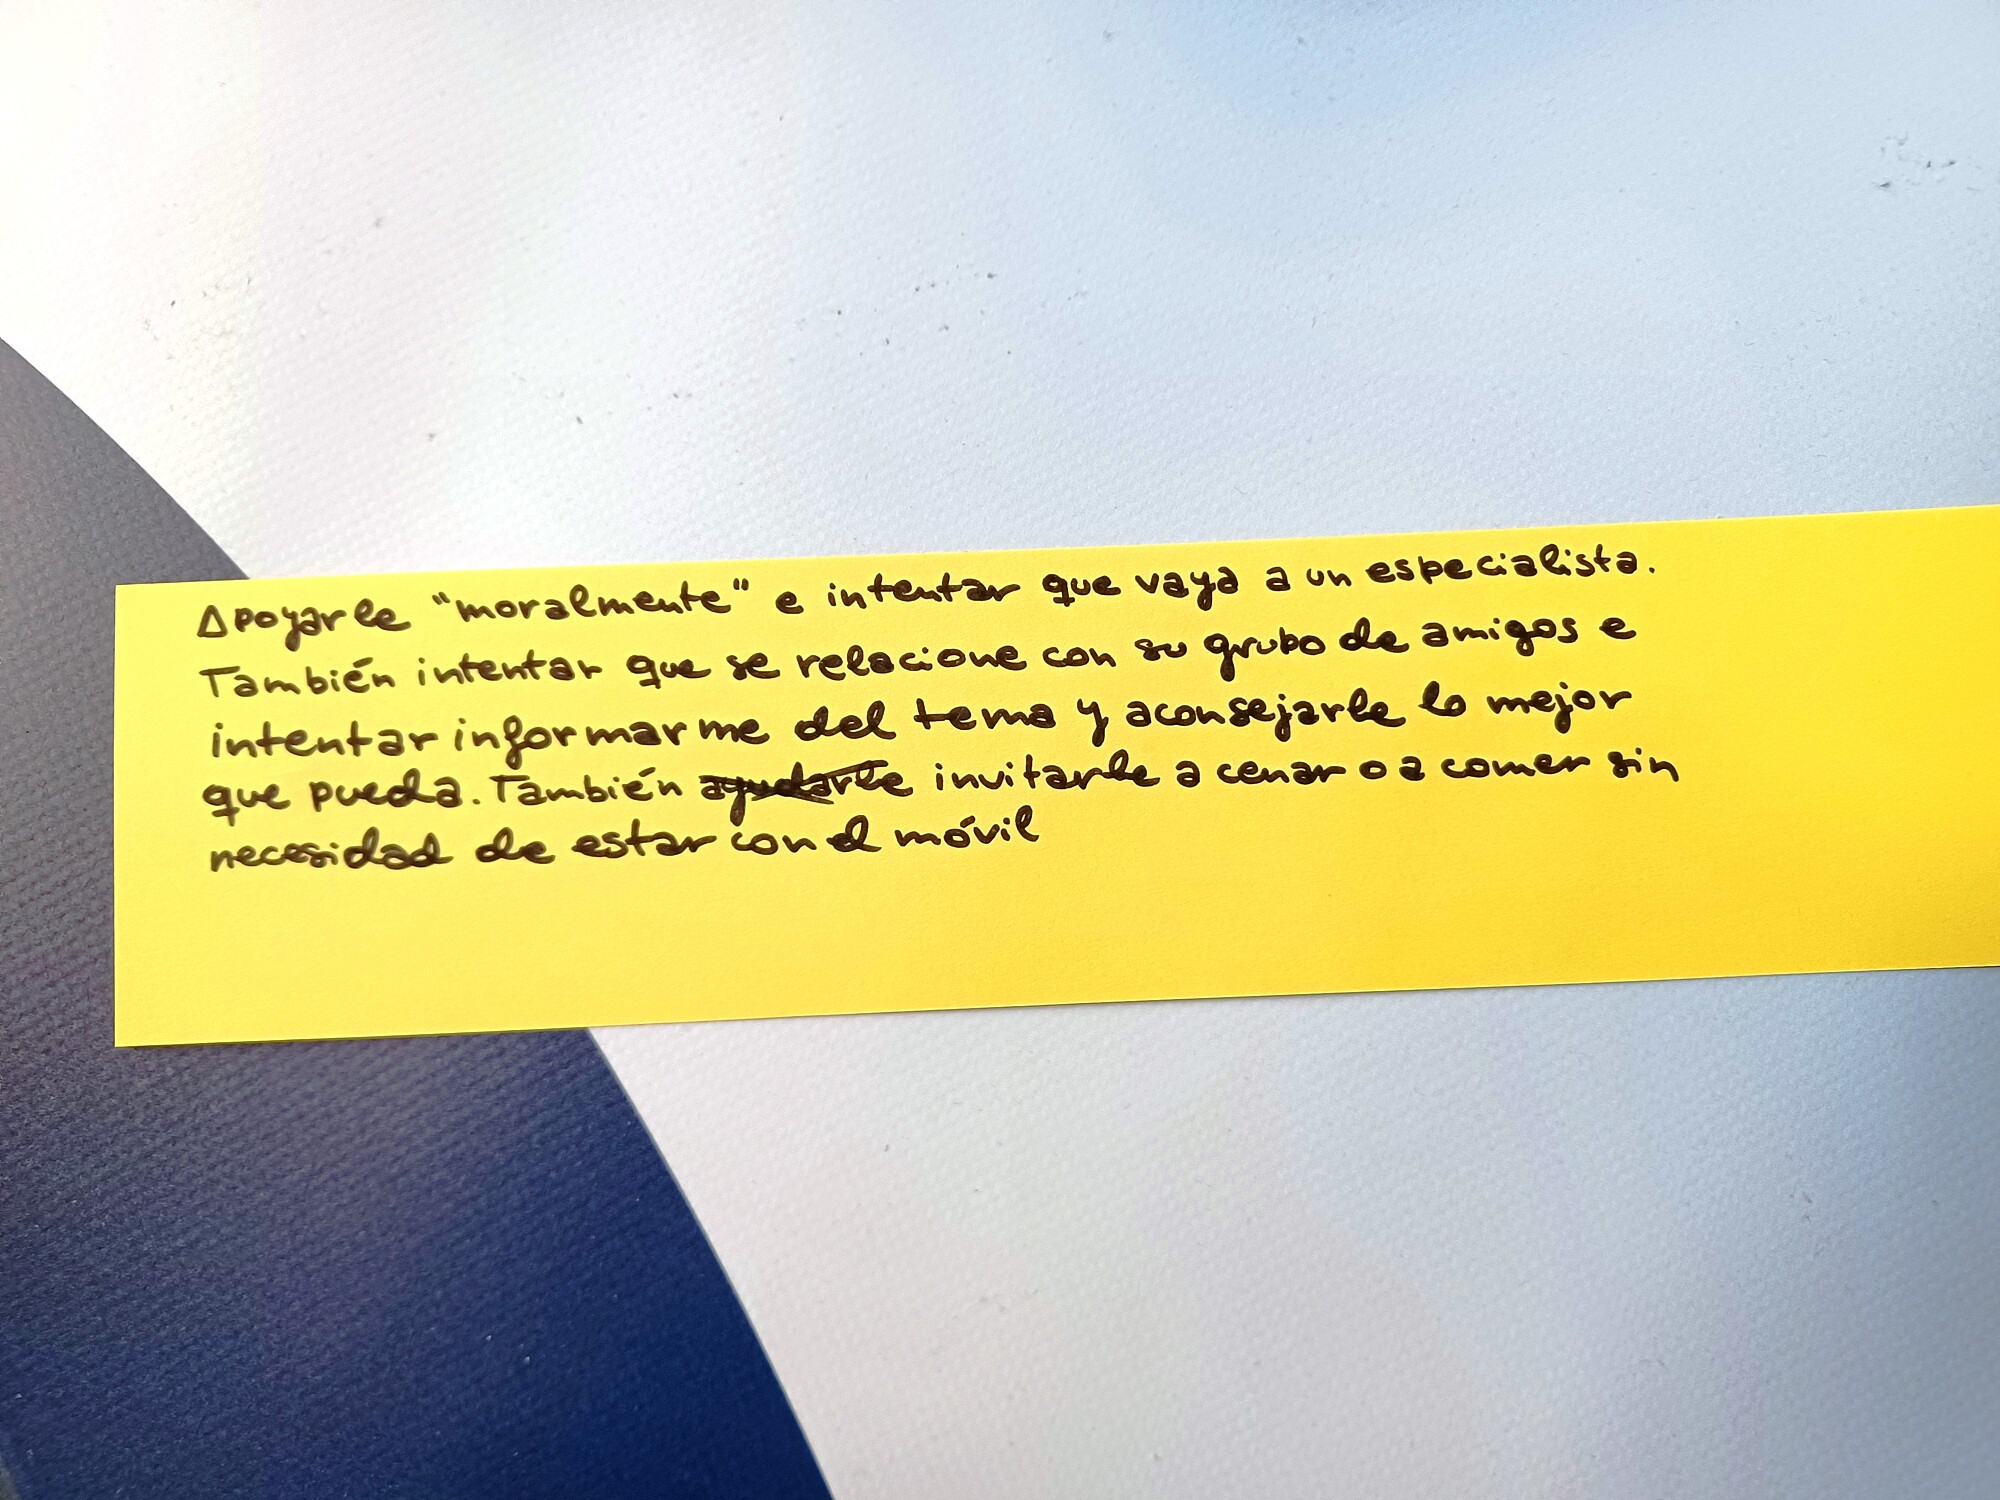 Apoyarle "moralmente" e intentar que vaya a un especialista.
También intentar que se relacione con su grupo de amigos e
intentar informarme del tema y aconsejarle lo mejor
que pueda. También ayudarle invitarle a cenar o a comer sin
necesidad de estar con el móvil